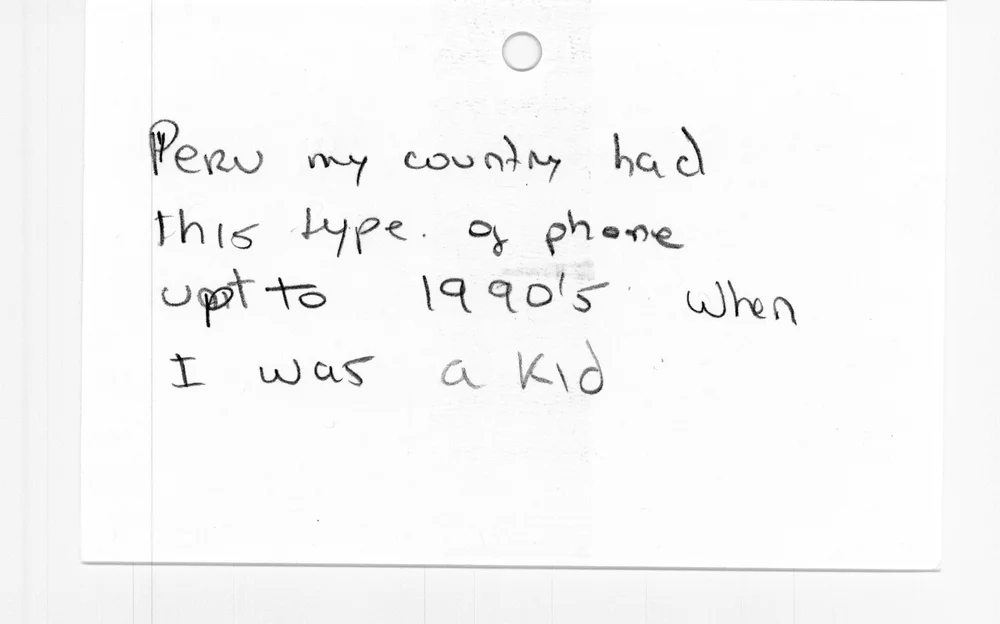 Peru my country had
this type. of phone
upt to 1990's when
I was a kid